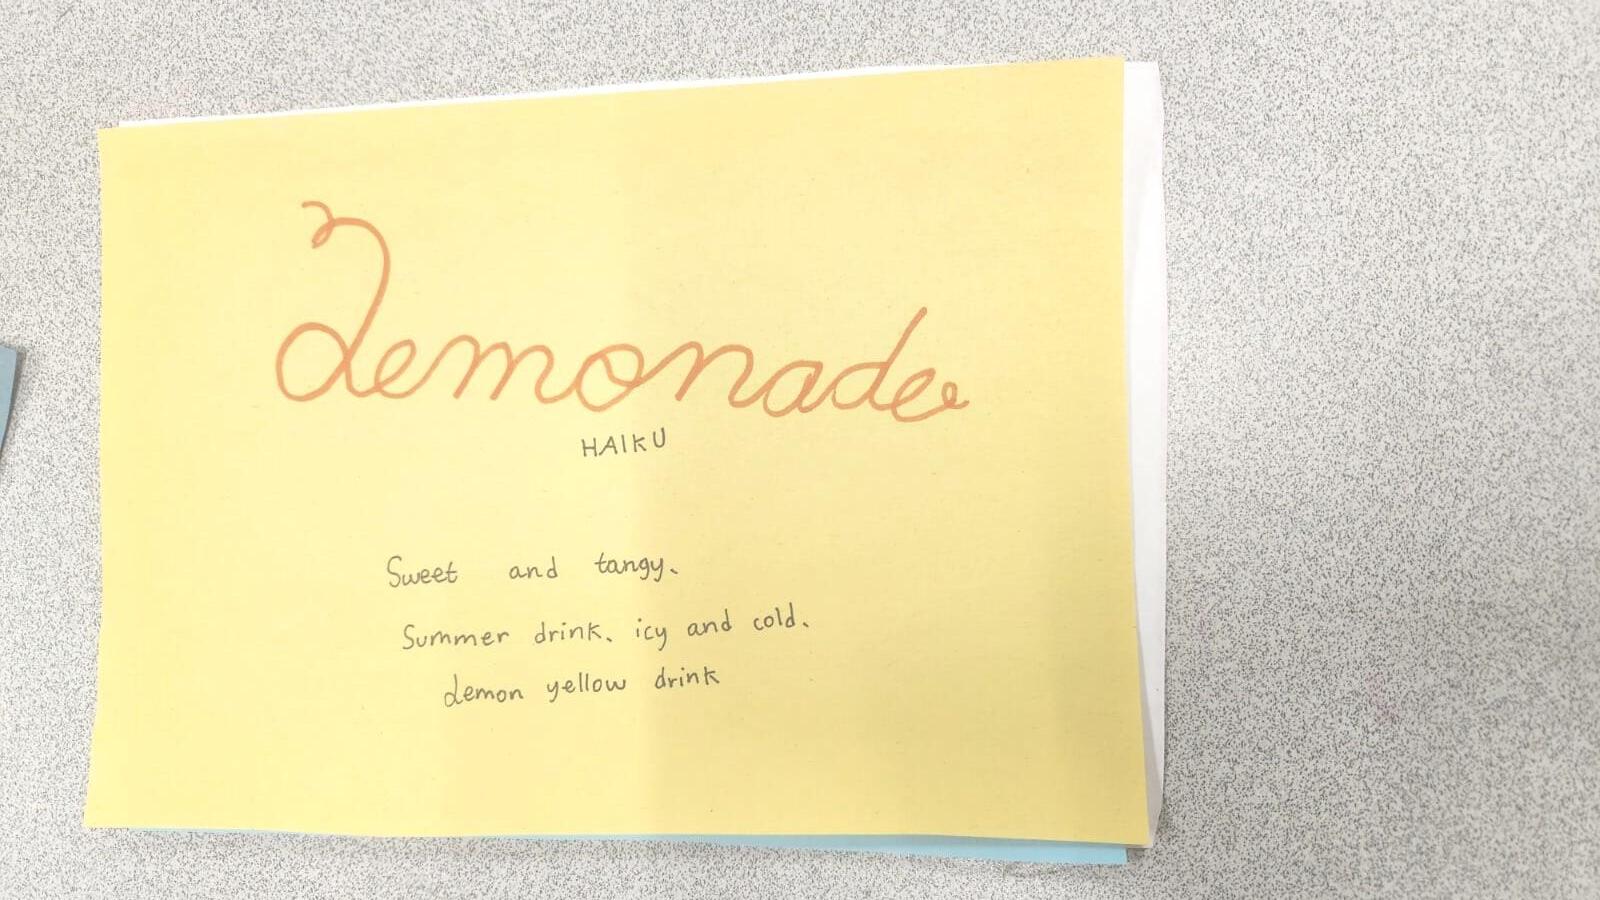 Lemonade
HAIKU
Sweet and tangy.
Summer drink, icy and cold.
Lemon yellow drink